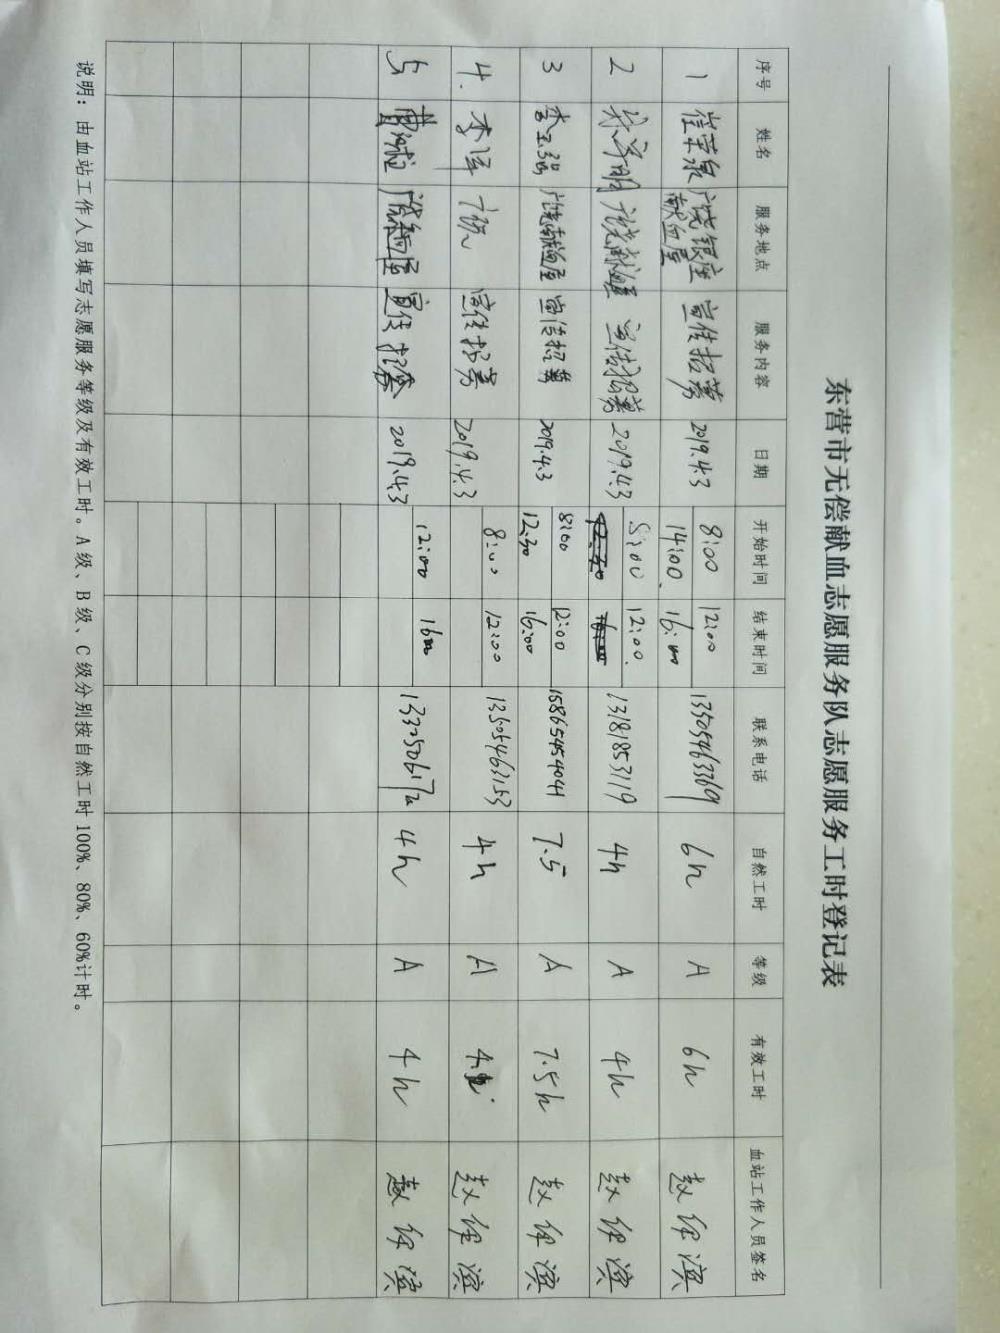 东营市无偿献血志愿服务队志愿服务工时登记表
序号 姓名 服务地点 服务内容 日期 开始时间 结束时间 联系电话 自然工时 等级 有效工时 血站工作人员签名
1 崔荣泉 广饶银座献血屋 宣传招募 2019.4.3 8:00 12:00 13505463369 6h A 6h
14:00 16:00
2 宣传招募 2019.4.3 8:00 12:00 13181853119 4h A 4h
3 李玉强 广饶献血屋 宣传招募 2019.4.3 8:00 12:00 15865454041 7.5 A 7.5h
12:30 16:00
4. 李泽 宣传招募 2019.4.3 8:00 12:00 13505463153 4h A
5 宣传招募 2019.4.3 12:00 4h A 4h
说明：由血站工作人员填写志愿服务等级及有效工时。A级、B级、C级分别按自然工时100%、80%、60%计时。